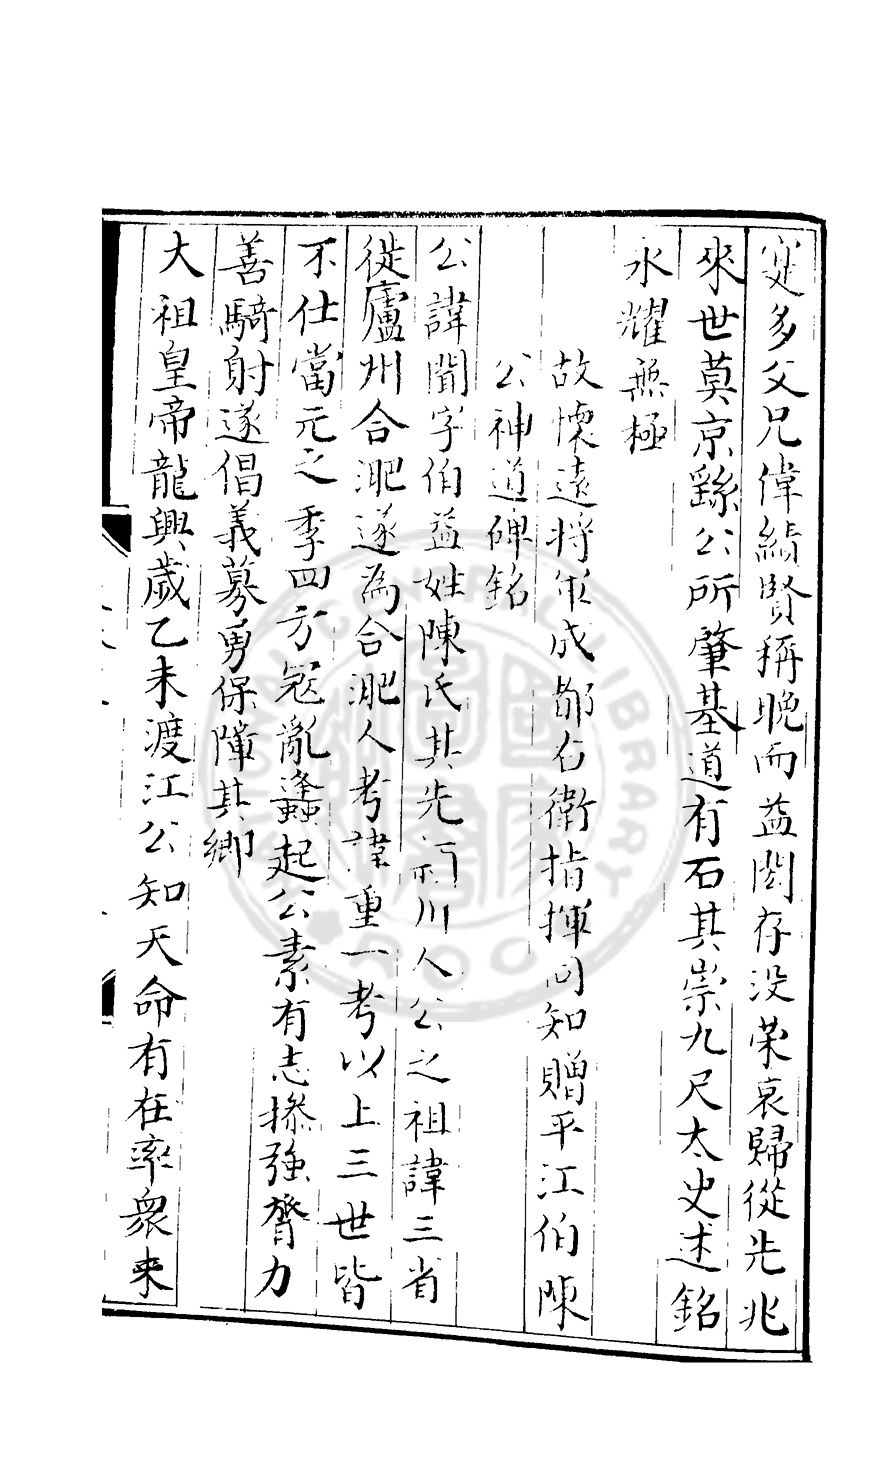 寔多父兄偉績賢稱晚而益閎存没荣哀歸從先兆
來世莫京繇公所肇基道有石其崇九尺太史述銘
永耀無極
故懷遠將軍成都右衛指揮同知贈平江伯陳
公神道碑銘
公諱聞字伯益姓陳氏其先川人公之祖諱三省
徙廬州合淝遂為合淝人考諱重一考以上三世皆
不仕當元之季四方冦亂蠭起公素有志摻強膂力
善騎射遂倡義募勇保障其鄉
大祖皇帝龍興歲乙未渡江公知天命有在率衆来